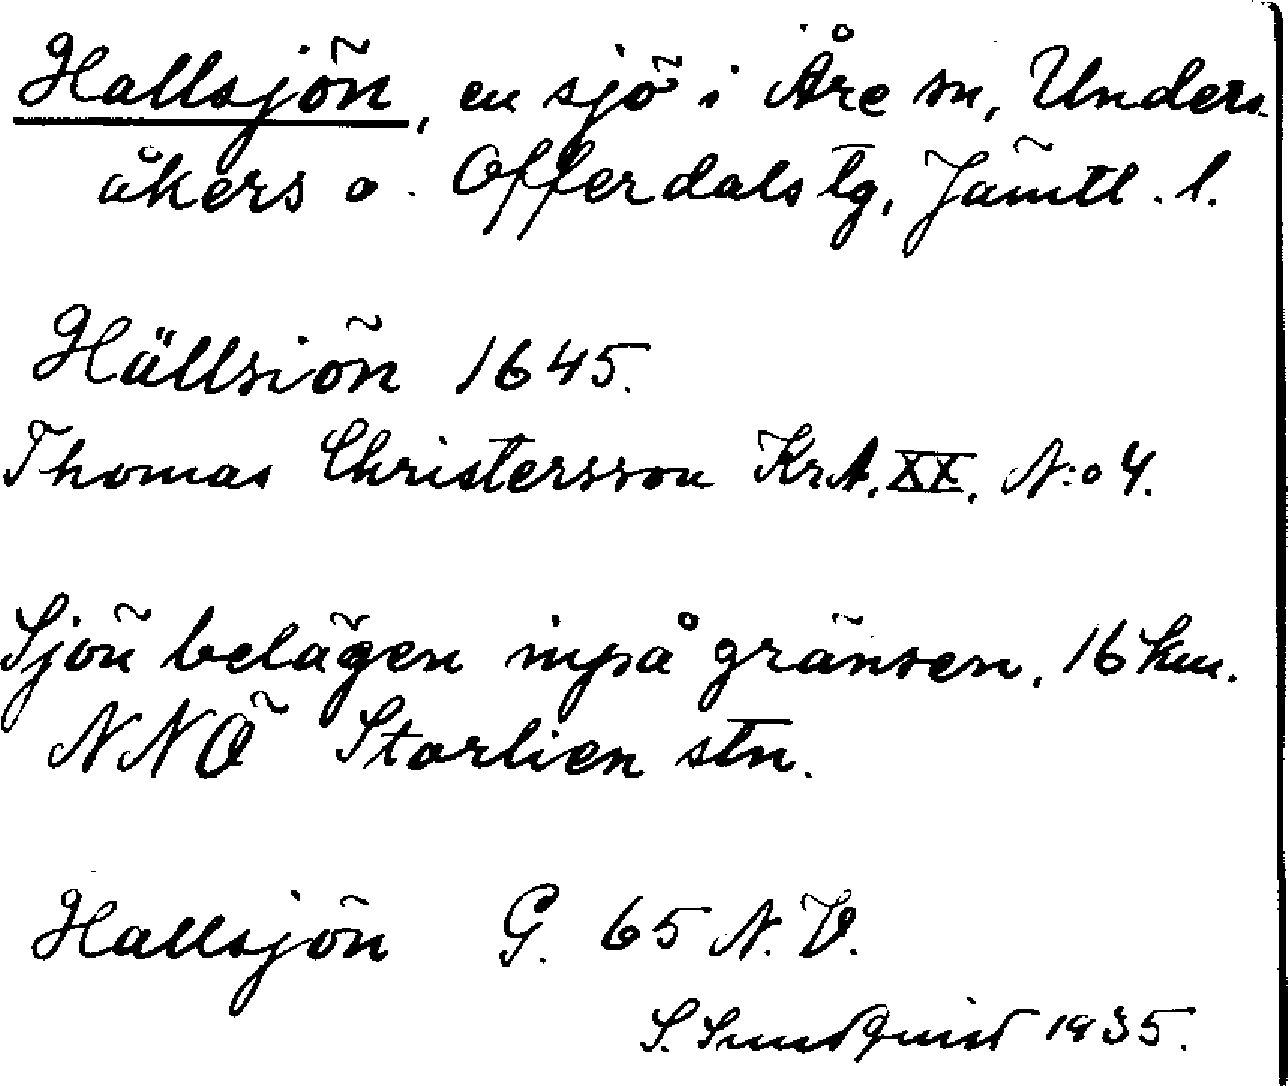 Hallsjön, en sjö i Åre sn, Unders-
åkers o. Offerdals tg, Jämtl. l.
Hällsiön 1645.
Thomas Christersson Kr.A. XX. N:o 4.
Sjön belägen inpå gränsen. 16 km.
NNÖ Storlien stn.
Hallsjön G. 65 N.V.
S. Sundquist 1935.